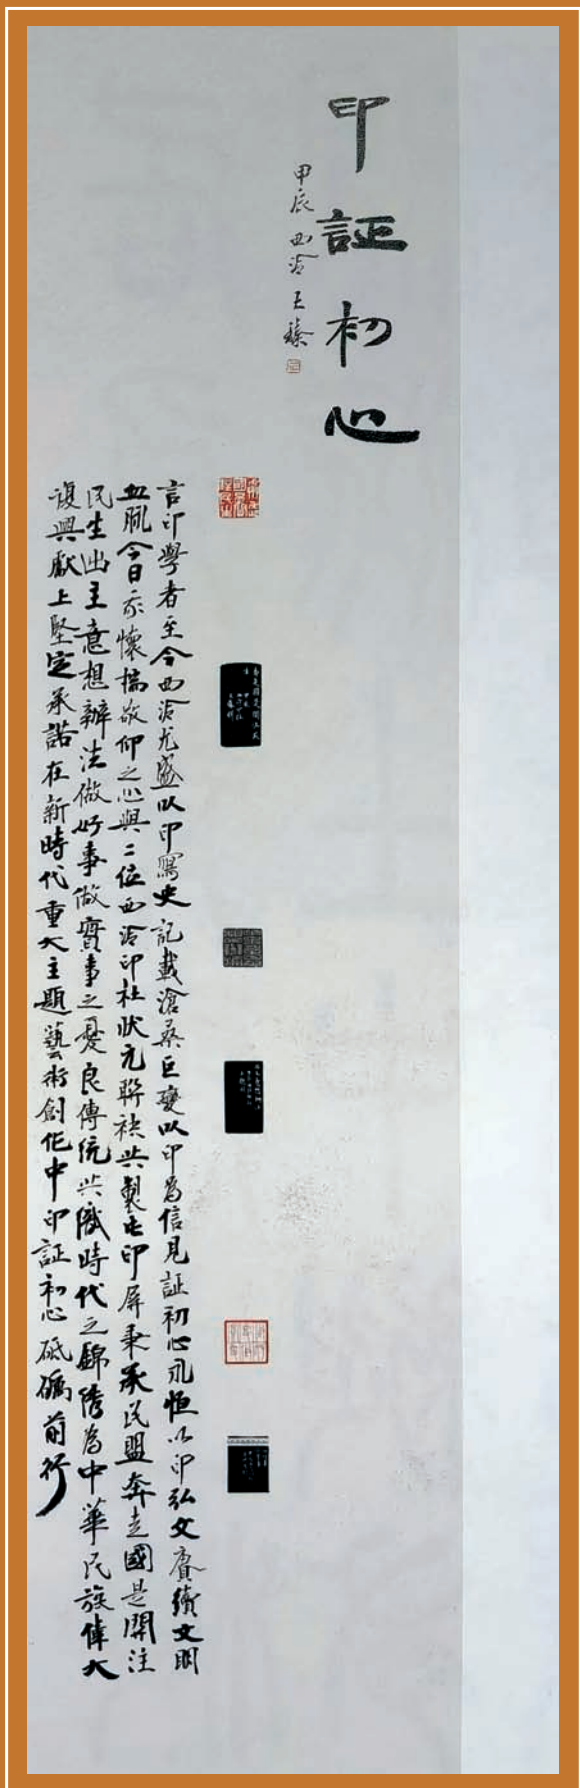 印証初心
甲辰西泠王臻
言印學者至今西泠尤盛以印寫史記載滄桑巨變以印為信見証初心永恒以印弘文賡續文明
血脈今日我懷揣敬仰之心與二位西泠印社狀元聯袂共製此印屏秉承民盟奔走國是關注
民生出主意想辦法做好事做實事之憂良傳統共織時代之錦繡為中華民族偉大
復興獻上堅定承諾在新時代重大主題藝術創作中印証初心砥礪前行